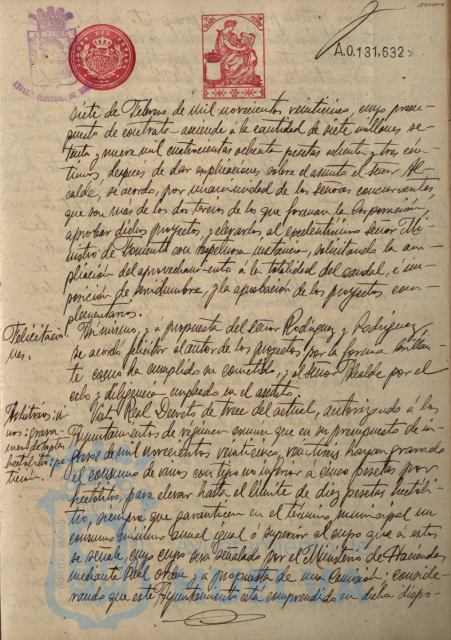 A.0.131,632
siete de Febrero de mil novecientos veinticinco, cuyo presu-
puesto de contrata asciende á la cantidad de siete millones se-
tenta y nueve mil cuatrocientas ochenta pesetas ochenta y tres cén-
timos, despues de dar explicaciones sobre el asunto el señor Al-
calde, se acordó, por unanimidad de los señores concurrentes
que son más de los dos tercios de los que forman la Corporación,
aprobar dichos proyectos, y elevarlos al excelentísimo señor Mi-
nistro de Fomento con respetuosa instancia, solicitando la am-
pliación del aprovechamiento á la totalidad del caudal, é im-
posición de servidumbre, y la aprobación de los proyectos com-
plementarios.
Felicitacio-
nes.
Asi mismo, y á propuesta del señor Rodríguez y Rodríguez,
se acordó felicitar al autor de los proyectos, por la forma brillan-
te como ha cumplido su cometido, y al señor Alcalde por el
celo y diligencia empleado en el asunto.
Visto Real Decreto de trece del actual, autorizando á los
Ayuntamientos de régimen común que en su presupuesto de in-
gresos de mil novecientos veinticinco, veintiseis hayan gravado
el consumo de vinos con tipo no inferior á cinco pesetas por
hectólitro, para elevar hasta el límite de diez pesetas hectóli-
tro, siempre que garanticen en el término municipal un
consumo mínimo anual igual ó superior al cupo que á estos
se señale, cuyo cupo será señalado por el Ministerio de Hacienda,
mediante Real orden, y á propuesta de una Comisión: conside-
rando que este Ayuntamiento está comprendido en dicha dispo-